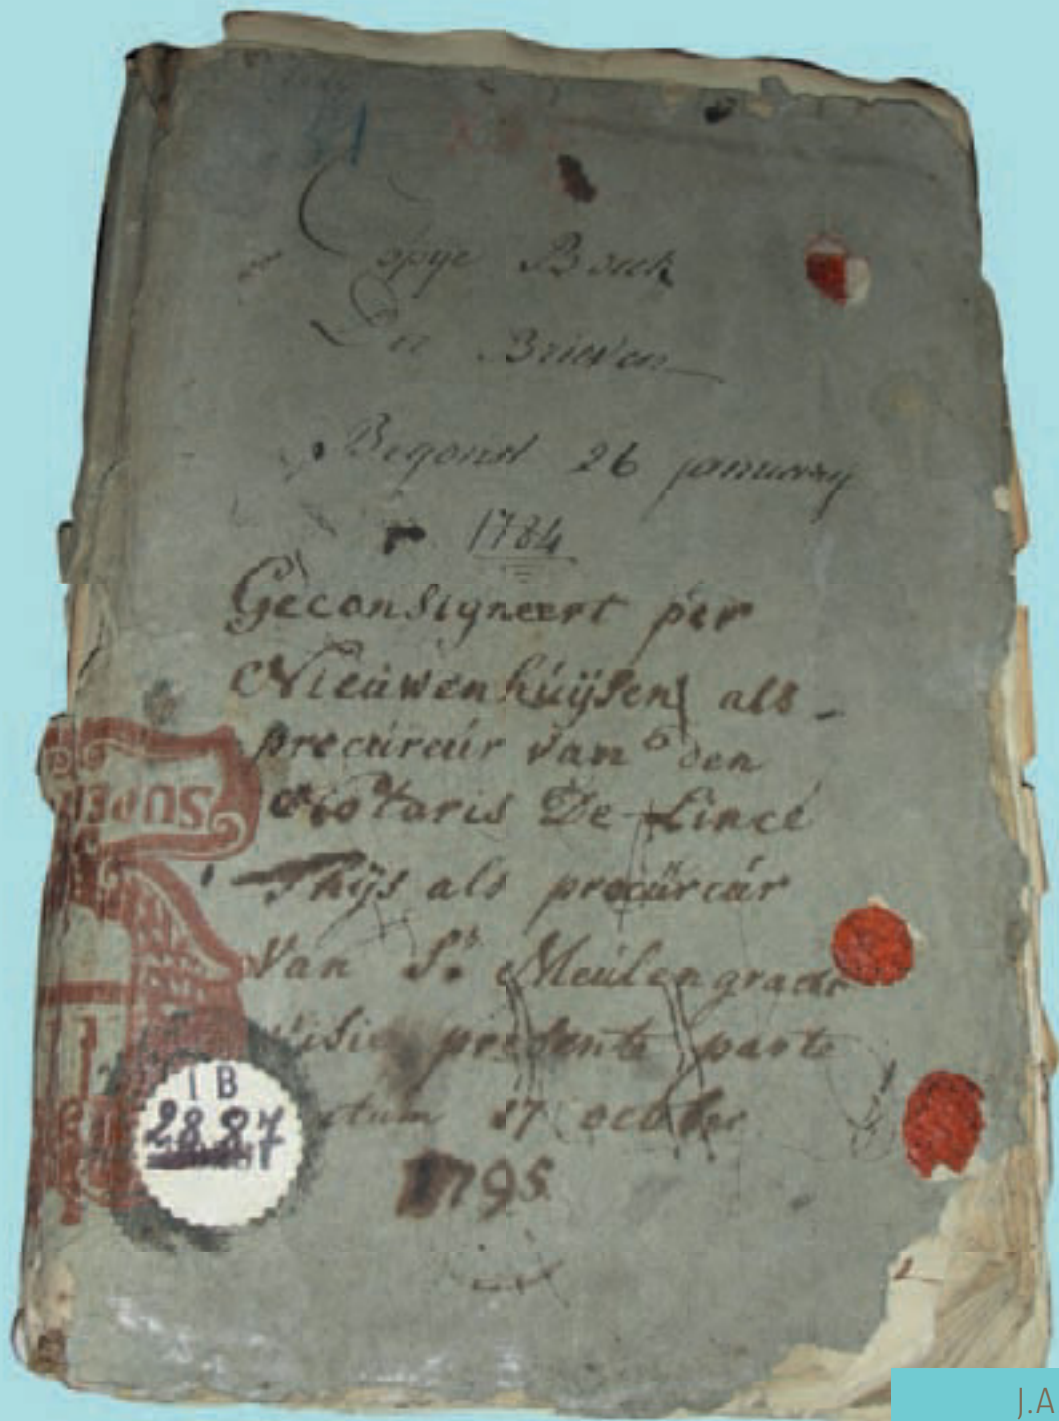 Copye Bouck
Der Brieven
Begonst 26 january
1784
Geconsigneert per
Nieuwenhuijsen als
procúreúr van den
Notaris De Lincé
Thijs als procúreúr
Van Sr Meúlengracht
visie presente parte
27 october
1795
SUPER
IB
2887
J.A